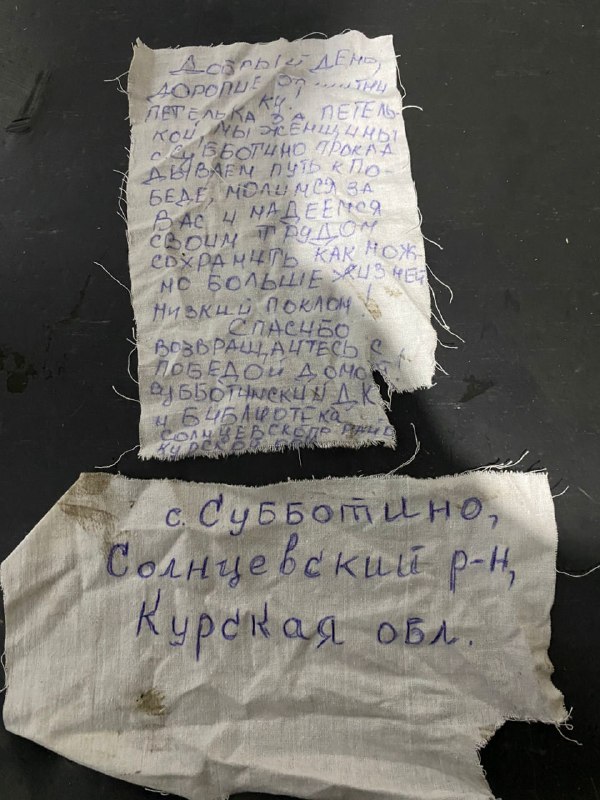 Добрый день,
дорогие
ку!
петелька за петель-
кой мы женщины
с Субботино прокла
дываем путь к по-
беде, молимся за
вас и надеемся
своим трудом
сохранить как мож-
но больше жизней
низкий поклон!
Спасибо
возвращайтесь с
победой домой
Субботинский ДК
и библиотека
Солнцевского района
Курской
с. Субботино,
Солнцевский р-н,
Курская обл.